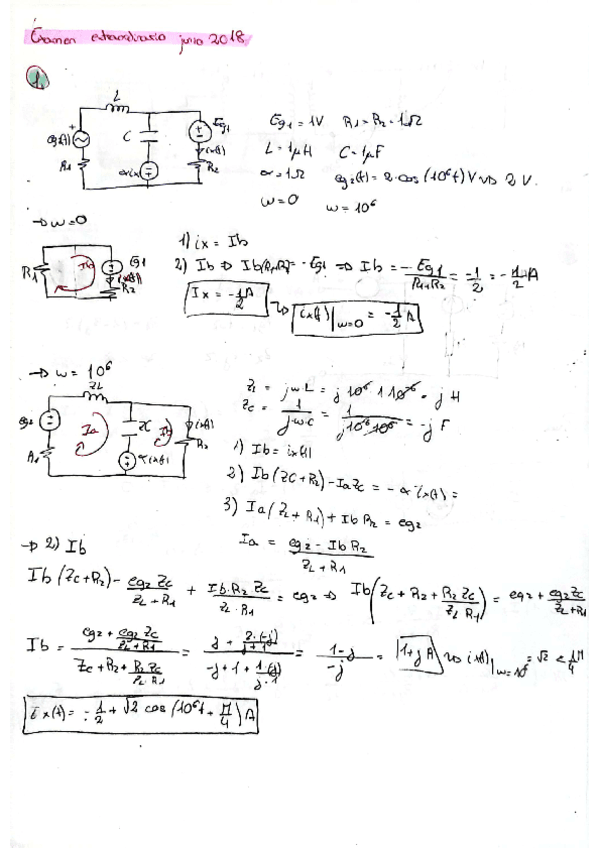 Examen extraordinario junio 2018
1.
L
+
eg2(t)
R1
C
αix
Eg1
ix(t)
R2
Eg1 = 1V R1 = R2 = 1Ω
L = 1μH C = 1μF
α = 1Ω eg2(t) = 2·cos(10⁶t) V → 2 V.
w = 0 w = 10⁶
→ w = 0
R1
Ib
Eg1
ix(t)
R2
1) ix = Ib
2) Ib ⇒ Ib(R1+R2) = -Eg1 ⇒ Ib = -Eg1/(R1+R2) = -1/2 = -1/2 A
Ix = -1/2 A → ix(t)|w=0 = -1/2 A
→ w = 10⁶
ZL
eg2
R1
Ia
ZC
αix(t)
Ib
ix(t)
R2
ZL = jw·L = j 10⁶ · 1 · 10⁻⁶ = j H
ZC = 1/(j·w·C) = 1/(j10⁶·10⁻⁶) = -j F
1) Ib = ix(t)
2) Ib(ZC+R2) - IaZC = -α·ix(t) =
3) Ia(ZL+R1) + Ib R2 = eg2
Ia = (eg2 - Ib R2)/(ZL+R1)
→ 2) Ib
Ib(ZC+R2) - (eg2 ZC)/(ZL+R1) + (Ib·R2 ZC)/(ZL·R1) = eg2 ⇒ Ib(ZC + R2 + (R2 ZC)/(ZL R1)) = eg2 + (eg2 ZC)/(ZL+R1)
Ib = (eg2 + (eg2 ZC)/(ZL+R1))/(ZC + R2 + (R2 ZC)/(ZL·R1)) = (2 + 2·(-j)/(j+1))/(-j + 1 + 1·(-j)/(j·1)) = (1-j)/(-j) = 1+j A → ix(t)|w=10⁶ = √2 < π/4
ix(t) = -1/2 + √2 cos(10⁶t + π/4) A